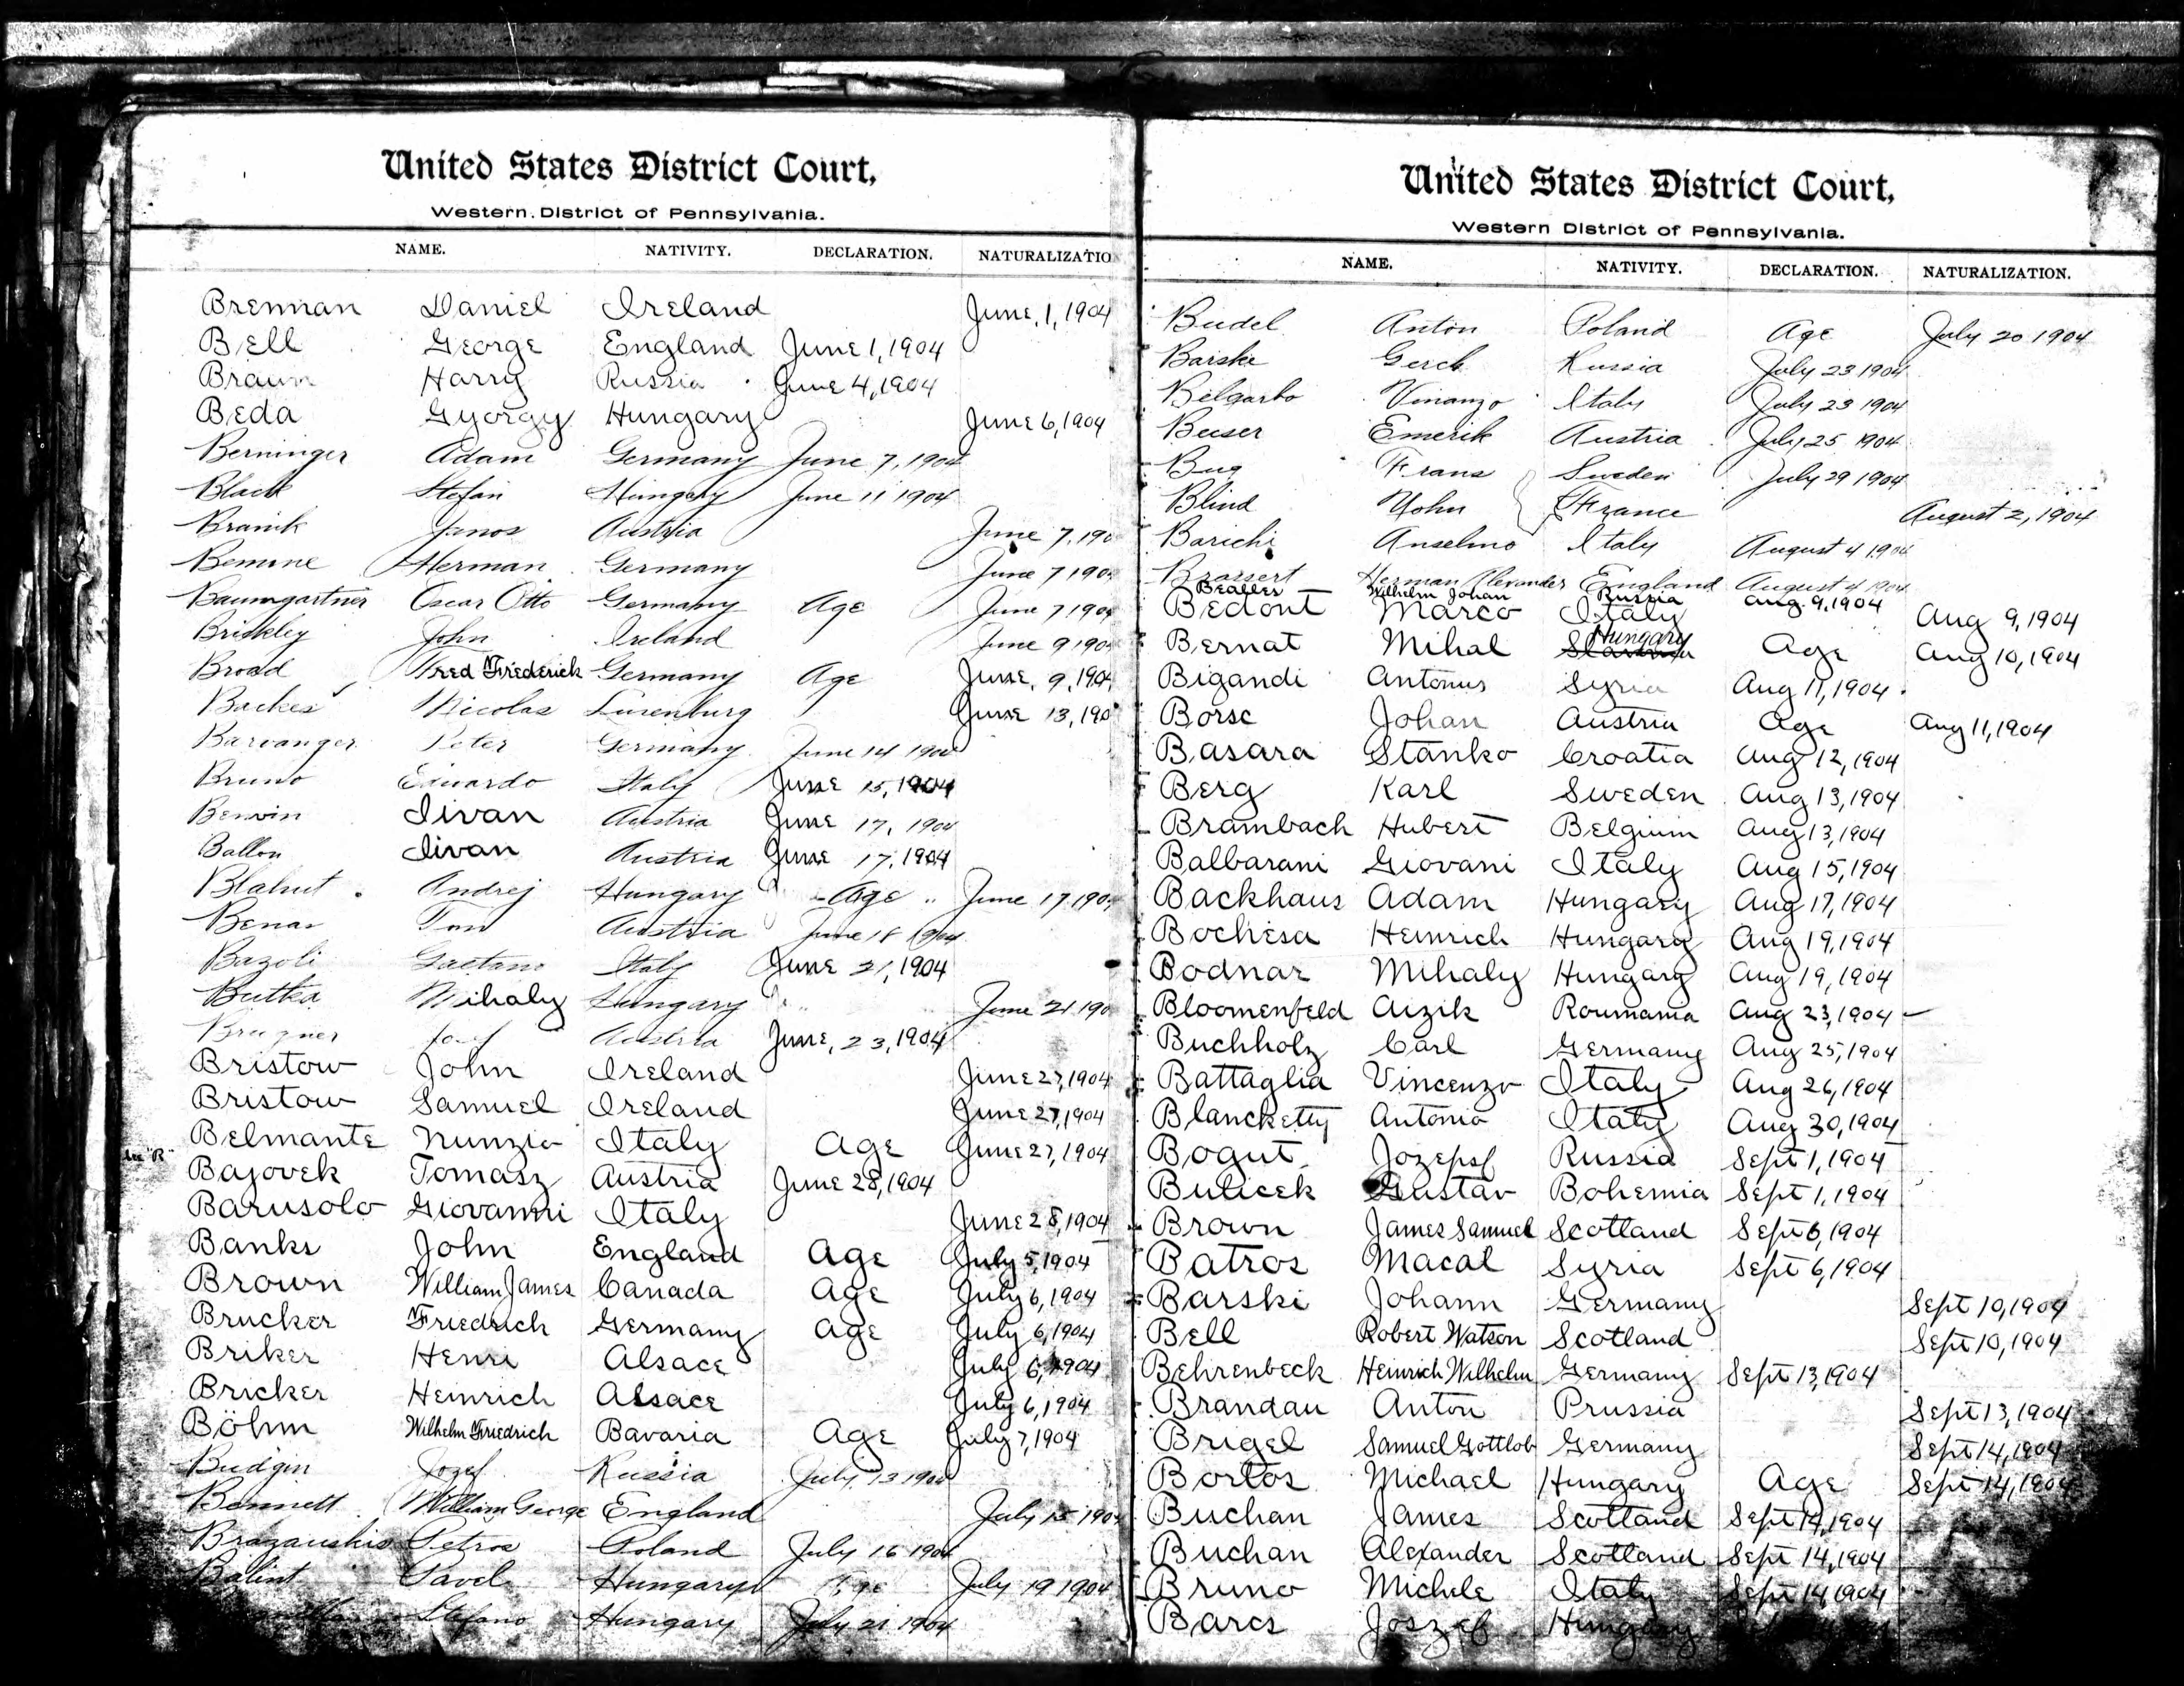 United States District Court,
Western District of Pennsylvania.
NAME. NATIVITY. DECLARATION. NATURALIZATIO
Brennan Daniel Ireland June 1, 1904
Bell George England June 1, 1904
Braun Harry Russia June 4, 1904
Beda Gyorgy Hungary June 6, 1904
Berninger Adam Germany June 7, 1904
Black Stefan Hungary June 11 1904
Branik Janos Austria June 7, 190
Bemme Herman Germany June 7 190
Baumgartner Oscar Otto Germany Age June 7 1904
Brickley John Ireland June 9 190
Broad Fred Friederick Germany Age June, 9, 1904
Backes Nicolas Luxenburg June 13, 190
Barvanger Peter Germany June 14 1904
Bruno Eduardo Italy June 15, 1904
Ivan Austria June 17, 1904
Ballon Ivan Austria June 17, 1904
Blahut Andrej Hungary Age June 17 190
Benas Austria June 18 1904
Bazoli Gaetano Italy June 21, 1904
Butka Mihaly Hungary June 21 190
Josef Austria June, 23, 1904
Bristow John Ireland June 27, 1904
Bristow Samuel Ireland June 27, 1904
Belmante Nunzio Italy Age June 27, 1904
see "R"
Bajovek Tomasz Austria June 28, 1904
Barusolo Giovanni Italy June 28, 1904
Banks John England Age July 5, 1904
Brown William James Canada Age July 6, 1904
Brucker Friedrich Germany Age July 6, 1904
Briker Henri Alsace July 6, 1904
Bricker Heinrich Alsace July 6, 1904
Böhm Wilhelm Friedrich Bavaria Age July 7, 1904
Budgin Jozef Russia July, 13 1904
Bennett William George England July 15 190
Brazauskis Petros Poland July 16 1904
Balint Pavel Hungary Age July 19 1904
Stefano Hungary July 21 1904
United States District Court,
Western District of Pennsylvania.
NAME. NATIVITY. DECLARATION. NATURALIZATION.
Budel Anton Poland Age July 20 1904
Barske Gerch Russia July 23 1904
Belgarbo Vinanzo Italy July 23 1904
Beiser Emerik Austria July 25 1904
Bug Frans Sweden July 29 1904
Blind John France August 2, 1904
Barichi Anselmo Italy August 4 1904
Brassert Herman Alexander England August 4 1904
Bealler Wilhelm Johan Russia Aug. 9, 1904
Bedont Marco Italy Aug 9, 1904
Bernat Mihal Hungary Age Aug 10, 1904
Bigandi Antonus Syria Aug 11, 1904
Borsc Johan Austria Age Aug 11, 1904
Basara Stanko Croatia Aug 12, 1904
Berg Karl Sweden Aug 13, 1904
Brambach Hubert Belgium Aug 13, 1904
Balbarani Giovani Italy Aug 15, 1904
Backhaus Adam Hungary Aug 17, 1904
Bochesa Heinrich Hungary Aug 19, 1904
Bodnar Mihaly Hungary Aug 19, 1904
Bloomenfeld Aizik Roumania Aug 23, 1904
Buchholz Carl Germany Aug 25, 1904
Battaglia Vincenzo Italy Aug 26, 1904
Blancketty Antonio Italy Aug 30, 1904
Bogut Jozepsf Russia Sept 1, 1904
Bulicek Gustav Bohemia Sept 1, 1904
Brown James Samuel Scotland Sept 6, 1904
Batros Macal Syria Sept 6, 1904
Barski Johann Germany Sept 10, 1904
Bell Robert Watson Scotland Sept 10, 1904
Behrenbeck Heinrich Wilhelm Germany Sept 13, 1904
Brandau Anton Prussia Sept 13, 1904
Brigel Samuel Gottlob Germany Sept 14, 1904
Bortos Michael Hungary Age Sept 14, 1904
Buchan James Scotland Sept 14, 1904
Buchan Alexander Scotland Sept 14, 1904
Bruno Michele Italy Sept 14 1904
Barcs Joszef Hungary